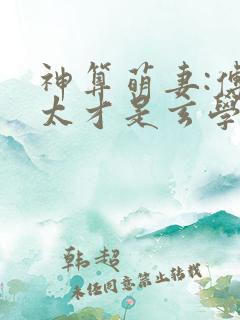 神算萌妻:傅
太才是玄學
韩超
未经同意禁止转载